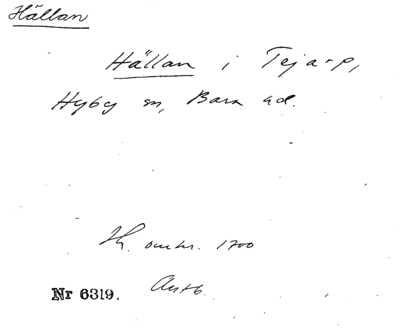 Hällan
Hällan i Tejarp,
Hyby sn, Bara hd.
omkr. 1700
Nr 6319.